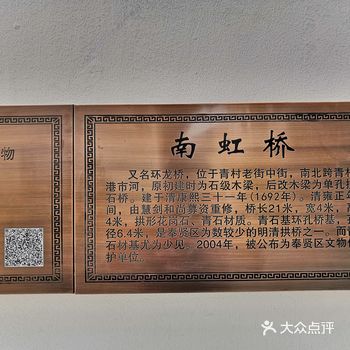 物
南虹桥
又名环龙桥，位于青村老街中街，南北跨青村
港市河，原初建时为石级木梁，后改木梁为单孔拱
石桥。建于清康熙三十一年(1692年)。清雍正年
间，由慧剑和尚募资重修，桥长21米，宽4米，高
米，拱形花岗石、青石材质。青石基环孔桥基，
径6.4米，是奉贤区为数较少的明清拱桥之一。而
石材基尤为少见。2004年，被公布为奉贤区文物
护单位。
大众点评